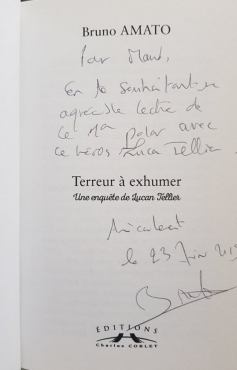 Bruno AMATO
Pour Maud,
En te souhaitant une
agréable lecture de
ce 1er polar avec
ce héros Lucan Tellier
Terreur à exhumer
Une enquête de Lucan Tellier
Amicalement
le 23 Juin
ÉDITIONS
Charles CORLET